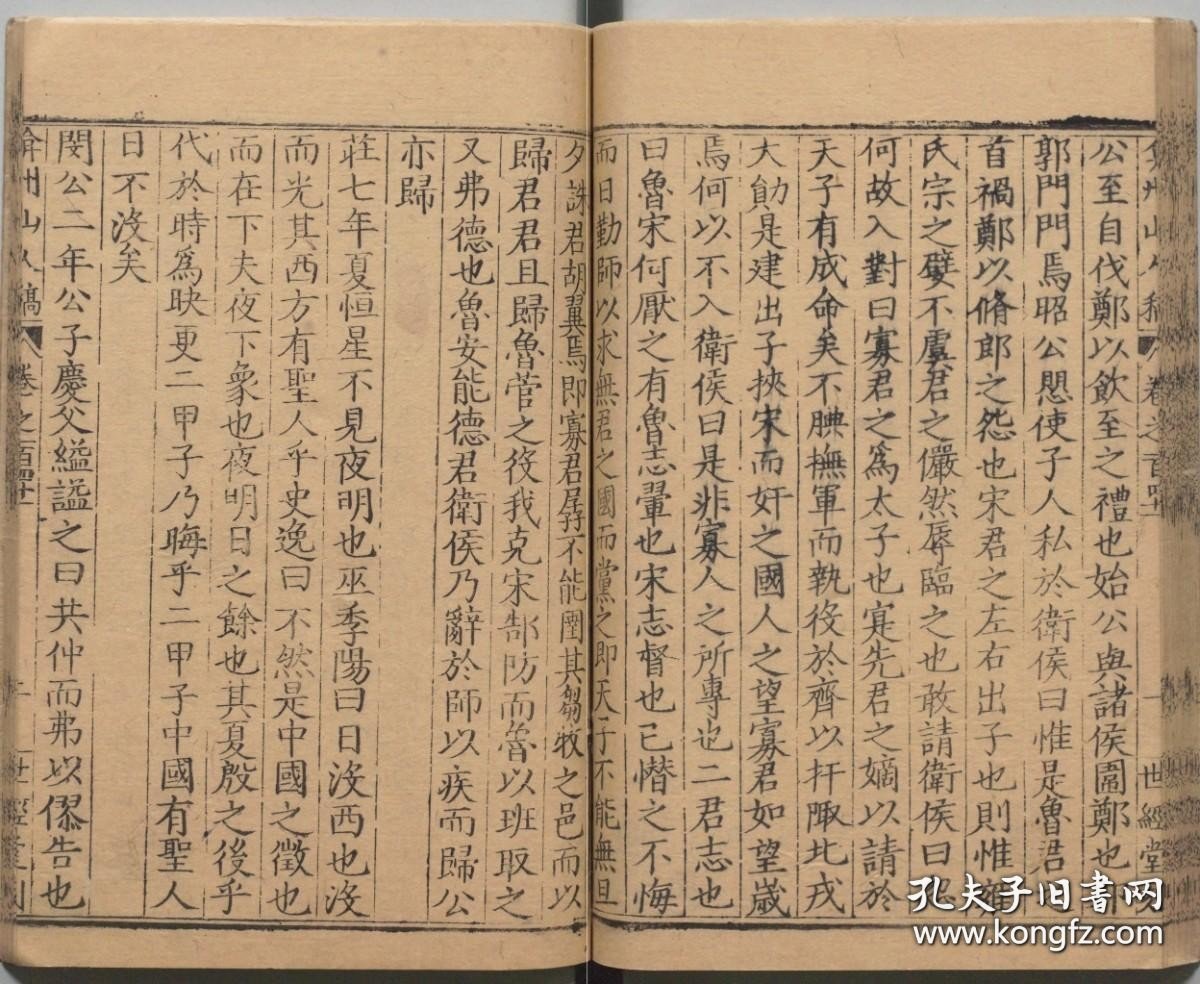 弇州山人稿 卷之百四十一 一 世經堂刻
公至自伐鄭以飲至之禮也始公與諸侯圍鄭也
郭門門焉昭公思使子人私於衛侯曰惟是魯君
首禍鄭以脩郎之怨也宋君之左右出子也則惟
氏宗之孽不虞君之儼然辱臨之也敢請衛侯曰
何故入對曰寡君之為太子也寔先君之嫡以請於
天子有成命矣不腆撫軍而執役於齊以扞陬北戎
大勛是建出子挾宋而奸之國人之望寡君如望歲
焉何以不入衛侯曰是非寡人之所專也二君志也
曰魯宋何厭之有魯志翬也宋志督也已憯之不悔
而日勤師以求無君之國而黨之即天子不能無旦
夕誅君胡翼焉即寡君孱不能圉其芻牧之邑而以
歸君君且歸魯菅之役我克宋郜防而魯以班取之
又弗德也魯安能德君衛侯乃辭於師以疾而歸公
亦歸
莊七年夏恒星不見夜明也巫季陽曰日沒西也沒
而光其西方有聖人乎史逸曰不然是中國之徵也
而在下夫夜下象也夜明日之餘也其夏殷之後乎
代於時為昳更二甲子乃晦乎二甲子中國有聖人
日不沒矣
閔公二年公子慶父縊謚之曰共仲而弗以僇告也
弇州山人稿 卷之百四十一 二 世經堂刻
孔夫子旧书网
www.kongfz.com